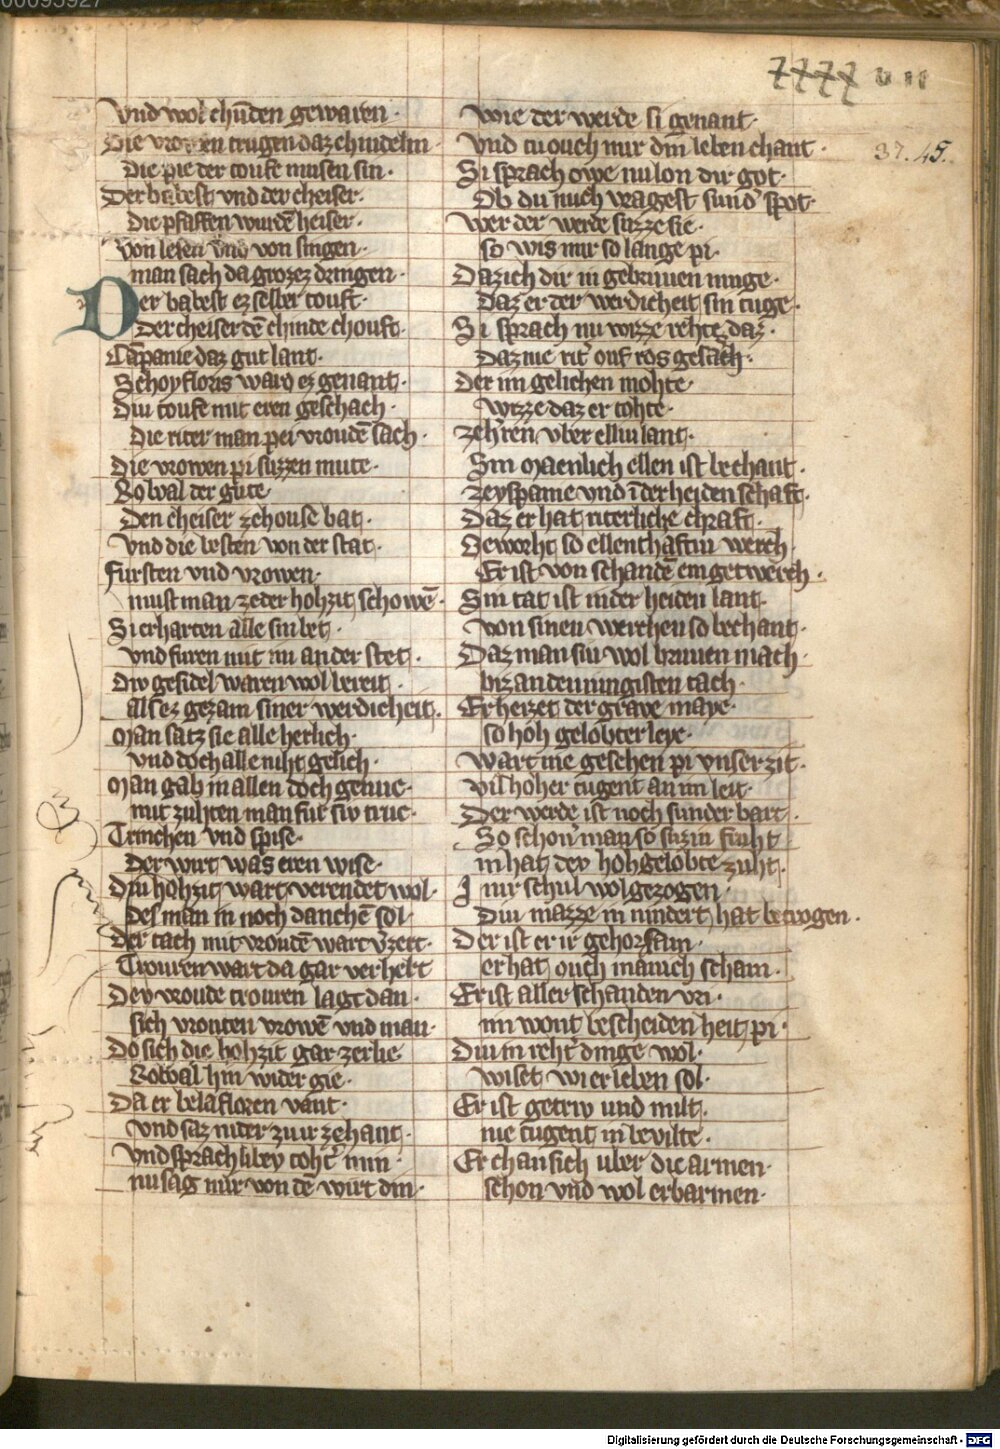 00095927
vnd wol chūden gewaren ·
Die vrowen trugen daz chindelin ·
Die pie der toufe musen sin ·
Der babest vnd der cheiser ·
Die pfaffen wurdē heiser ·
von lesen vnd von singen ·
man sach da grozez dringen ·
Der babest ez selber touft ·
Der cheiser dē chinde chouft ·
Cāpanie daz gut lant ·
Schoyfloris wart ez genant ·
Diu toufe mit eren geschach ·
Die riter man pei vroudē sach ·
Die vrowen pi suzzen mute ·
Gowal der gute
Den cheiser zehouse bat ·
Vnd die besten von der stat ·
fursten vnd vrowen ·
must man zeder hohzit schowē ·
Si erharten alle sin bet ·
vnd furen mit im an der stet ·
Div gesidel waren wol bereit ·
als ez gezam siner werdicheit ·
Man satz sie alle herlich ·
vnd doch alle niht gelich ·
Man gab in allen doch genuc ·
mit zuhten man fur siv truc ·
Trinchen vnd spise ·
Der wirt was eren wise ·
Diu hohzit wart verendet wol ·
Des man in noch danchē sol ·
Der tach mit vroudē wart v̄zert ·
Trouren wart da gar verhert
Dev vroude trouren lagt dan ·
sich vrouten vrowē vnd man ·
Do sich die hohzit gar zerlie
Gowal hin wider gie ·
Da er belafloren vant ·
vnd saz nider zu ir zehant ·
Vnd sprach libev toht̄ min ·
nu sag mir von dē wirt din ·
wie der werde si genant ·
Vnd tu ouch mir din leben chant ·
Si sprach owe nu lon dir got ·
Ob du mich vragest sund̄ spot ·
Wer der werde suzze sie ·
so wis mir so lange pi ·
Daz ich dir in gebriuen muge ·
Daz er der werdicheit sin tuge ·
Si sprach nu wizze rehte daz ·
Daz nie rit̄ ouf ros gesach ·
Der im gelichen mohte ·
wizze daz er tohte ·
zehren vber elliu lant ·
Sin manlich ellen ist bechant ·
zeyspanie vnd ī der heiden schaft ·
Daz er hat riterliche chraft ·
Geworht so ellenthaftiu werch
Er ist von schandē ein getwerch ·
Sin tat ist in der heiden lant ·
von sinen werchen so bechant ·
Daz man siu wol briuuen mach ·
biz an den iungisten tach ·
Er heizet der grave maye ·
so hoh gelobter leye ·
Wart nie gesehen pi vnser zit ·
vil hoher tugent an im leit ·
Der werde ist noch sunder bart ·
So schon̄ man so suziu fruht
in hat dev hohgelobte zuht ·
In ir schul wol gezogen ·
Diu mazze in nindert hat betrogen ·
Der ist er ir gehorsam ·
er hat ouch manich scham ·
Er ist aller schanden vri ·
im wont bescheidenheit pi ·
Diu in reht̄ dinge wol ·
wiset wi er leben sol ·
Er ist getriv und milt ·
nie tugent in bevilte ·
Er chan sich uber die armen ·
schon vnd wol erbarmen ·
37. 45.
Digitalisierung gefördert durch die Deutsche Forschungsgemeinschaft - DFG